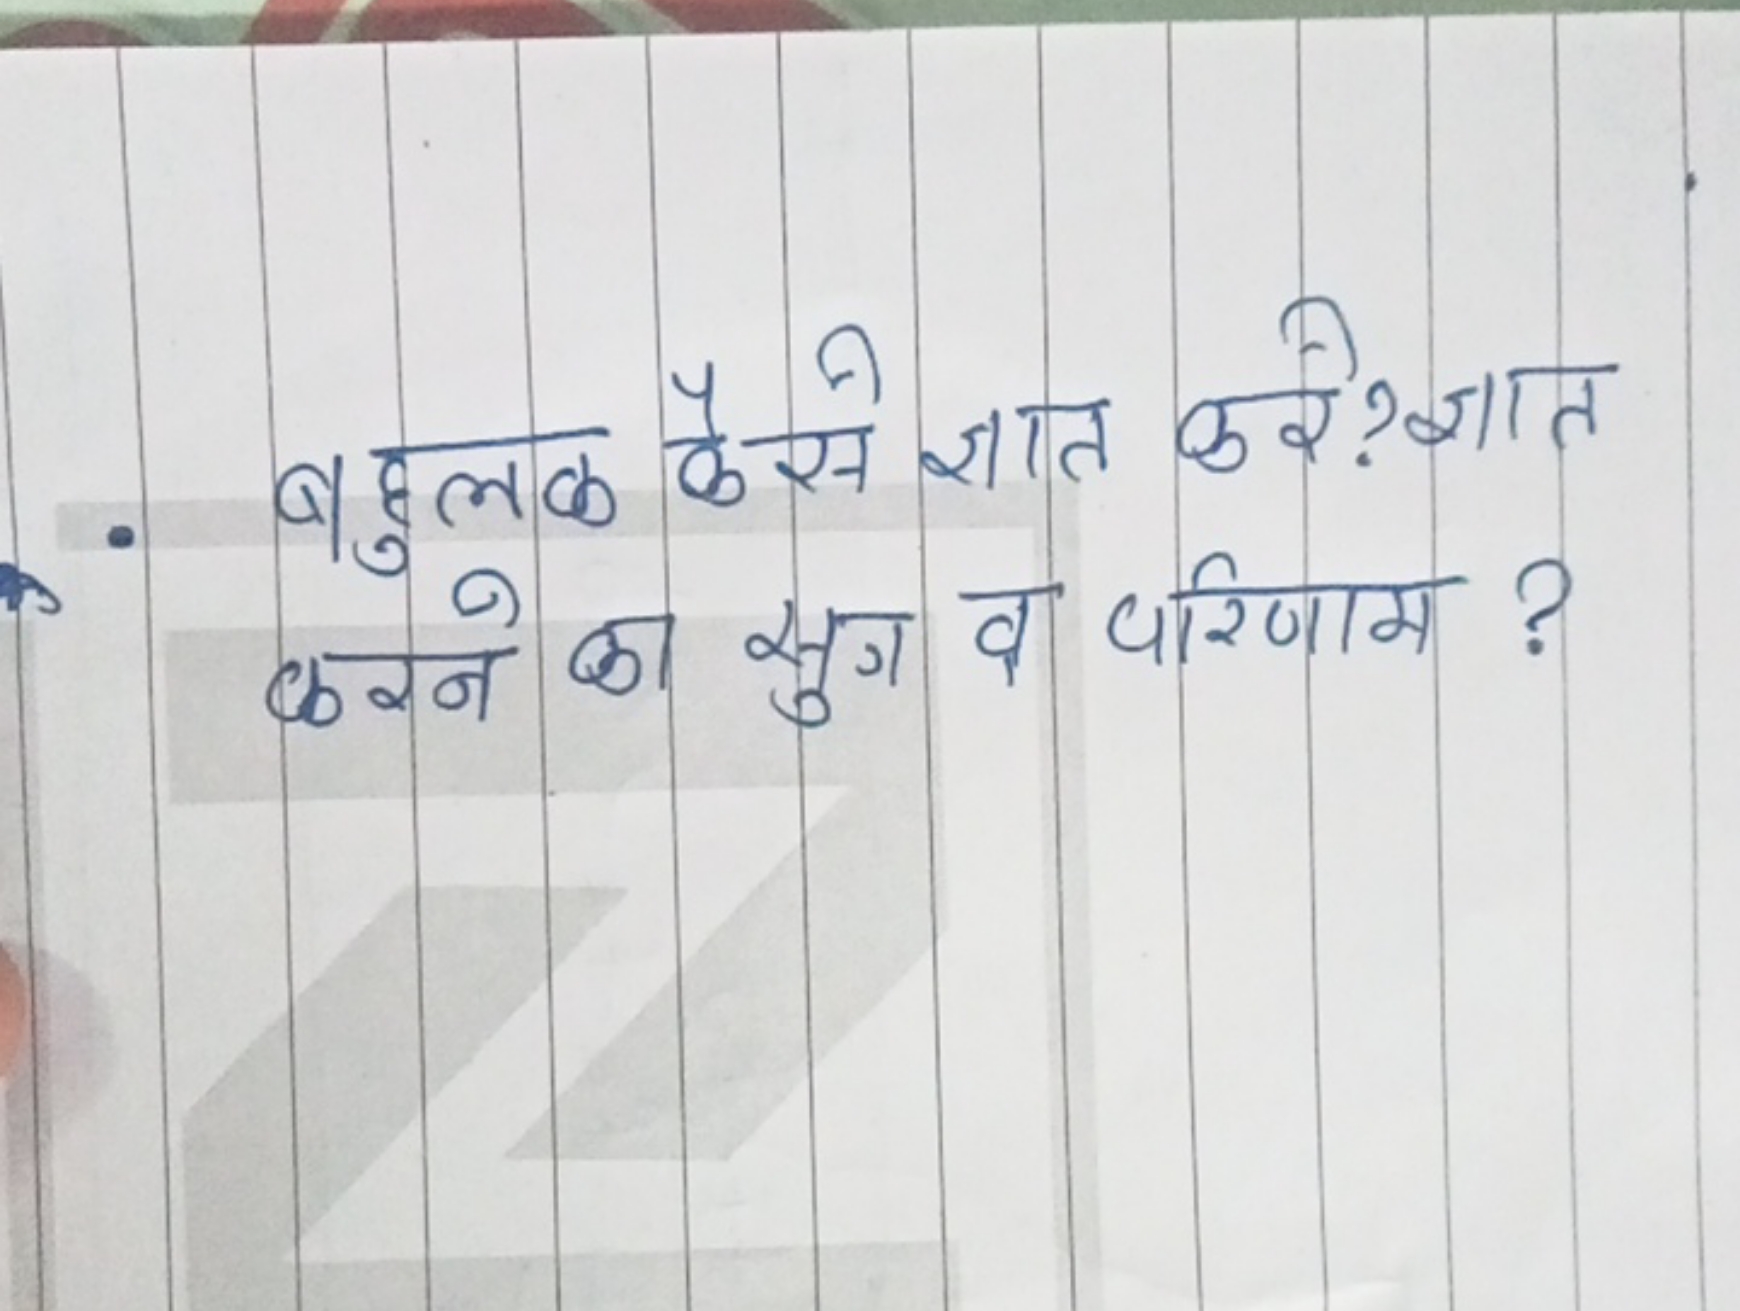 बहुलक कैसे ज्ञात करे? ज्ञात
करने का सुत्र व परिणाम ?